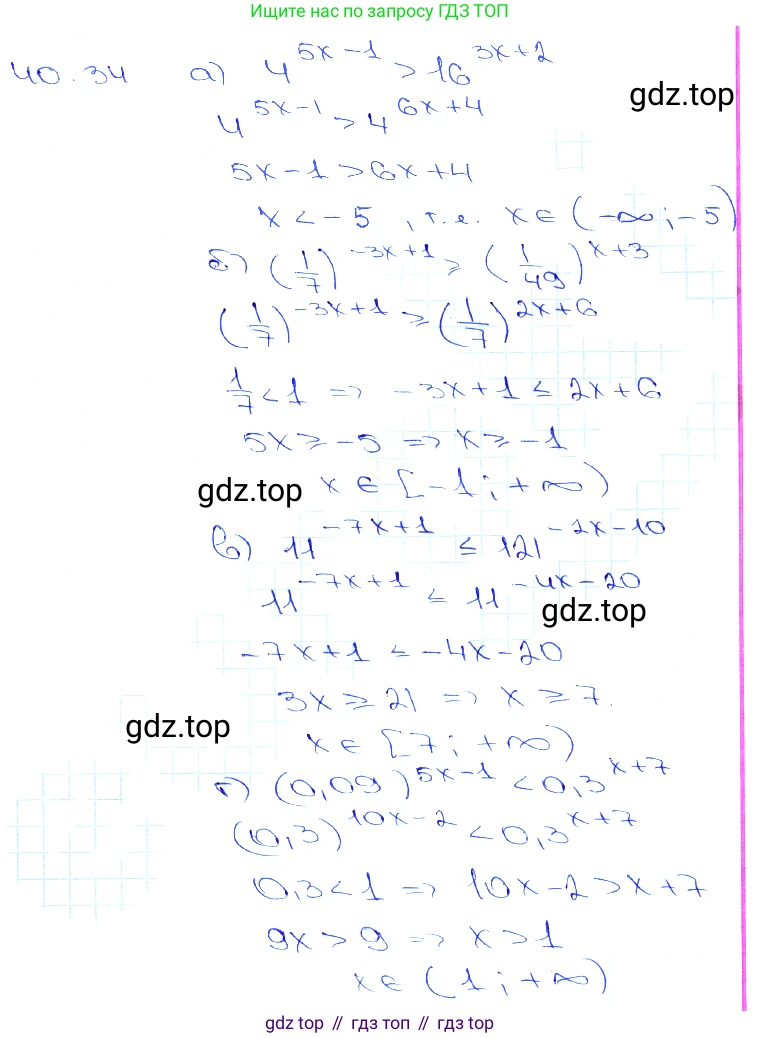 Ищите нас по запросу ГДЗ ТОП
40.34 а) 4^(5x-1) > 16^(3x+2)
gdz.top
4^(5x-1) > 4^(6x+4)
5x-1 > 6x+4
x < -5, т.е. x ∈ (-∞; -5)
б) (1/7)^(-3x+1) ≥ (1/49)^(x+3)
(1/7)^(-3x+1) ≥ (1/7)^(2x+6)
1/7 < 1 => -3x+1 ≤ 2x+6
5x ≥ -5 => x ≥ -1
gdz.top x ∈ [-1; +∞)
в) 11^(-7x+1) ≤ 121^(-2x-10)
11^(-7x+1) ≤ 11^(-4x-20)
gdz.top
-7x+1 ≤ -4x-20
3x ≥ 21 => x ≥ 7.
gdz.top x ∈ [7; +∞)
г) (0,09)^(5x-1) < 0,3^(x+7)
(0,3)^(10x-2) < 0,3^(x+7)
0,3 < 1 => 10x-2 > x+7
9x > 9 => x > 1
x ∈ (1; +∞)
gdz top // гдз топ // gdz top